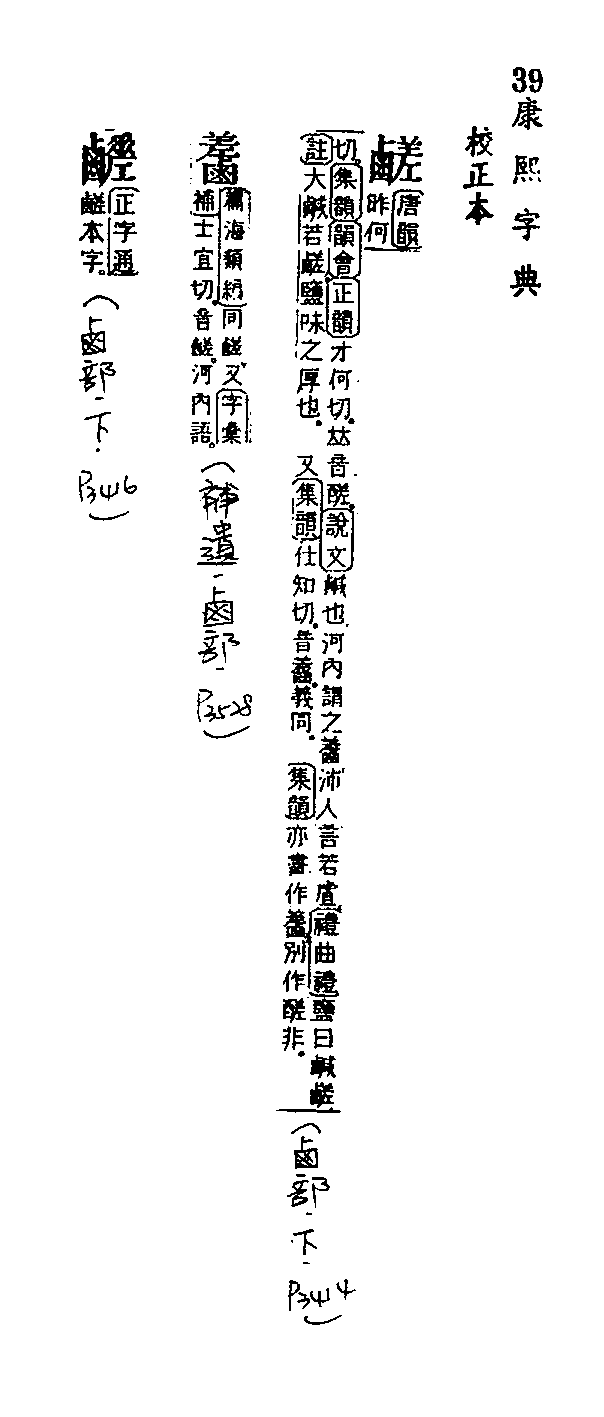 39康熙字典
校正本
鹺
唐韻昨何
切集韻韻會正韻才何切𠀤音醝說文鹹也河內謂之䴾沛人言若虘禮曲禮鹽曰鹹鹺
註大鹹若鹺鹽味之厚也 又集韻仕知切音䴾義同 集韻亦書作䴾別作醝非
(鹵部·下·P3414)
䴾
篇海類編同鹺又字彙
補士宜切音鹺河內語
(補遺·鹵部·P3528)
正字通
鹺本字
(鹵部·下·P3416)